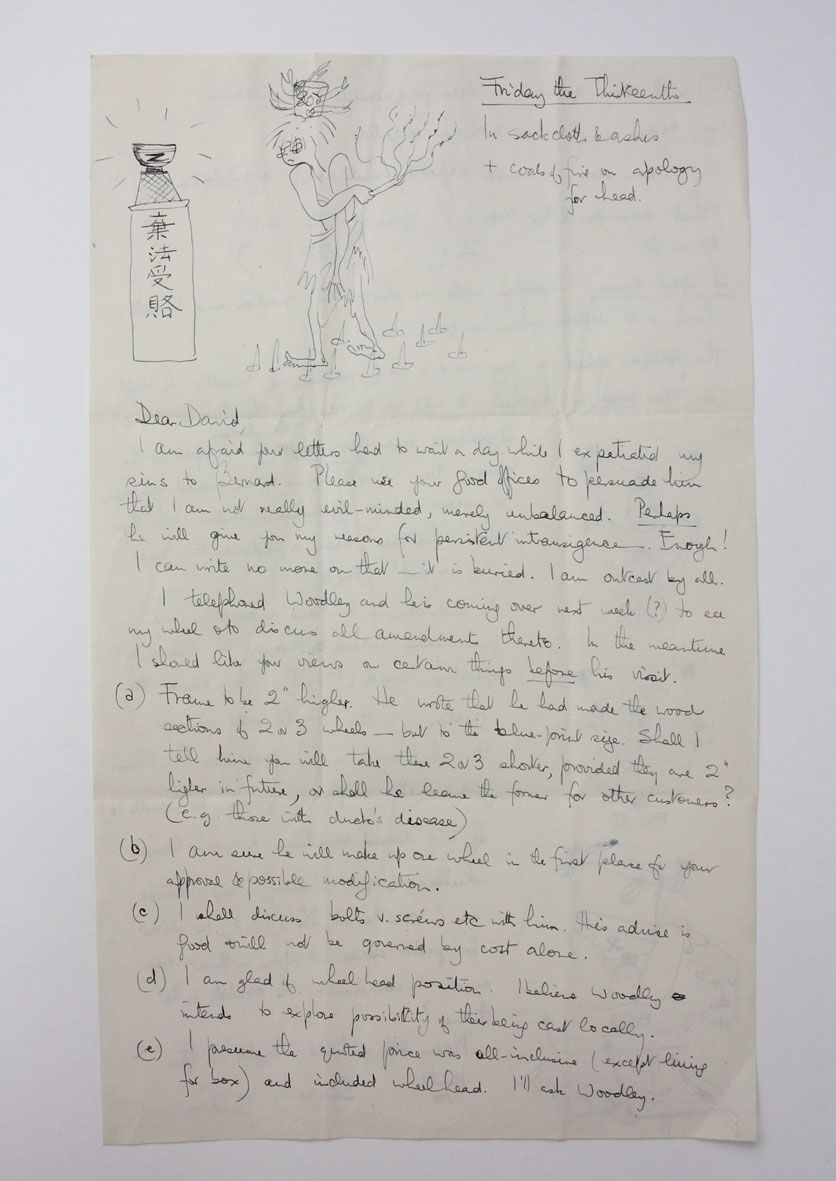 Friday the Thirteenth
In sackcloth & ashes
+ coals of fire on apology
for head.
Z
棄法受賂
Dear David,
I am afraid your letters had to wait a day while I expatiated my
sins to Bernard. Please use your good offices to persuade him
that I am not really evil-minded, merely unbalanced. Perhaps
he will give you my reasons for persistent intransigence. Enough!
I can write no more on that — it is buried. I am outcast by all.
I telephoned Woodley and he is coming over next week (?) to see
my wheel & to discuss all amendments thereto. In the meantime
I should like your views on certain things before his visit.
(a) Frame to be 2" higher. He wrote that he had made the wood
sections of 2 or 3 wheels — but to the blue-print size. Shall I
tell him you will take these 2 or 3 shorter, provided they are 2"
higher in future, or shall he leave the former for other customers?
(e.g. those with duck's disease)
(b) I am sure he will make up one wheel in the first place for your
approval & possible modification.
(c) I shall discuss bolts v. screws etc with him. His advise is
good & will not be governed by cost alone.
(d) I am glad of wheel head position. I believe Woodley
intends to explore possibility of their being cast locally.
(e) I presume the quoted price was all-inclusive (except lining
for box) and included wheel head. I'll ask Woodley.